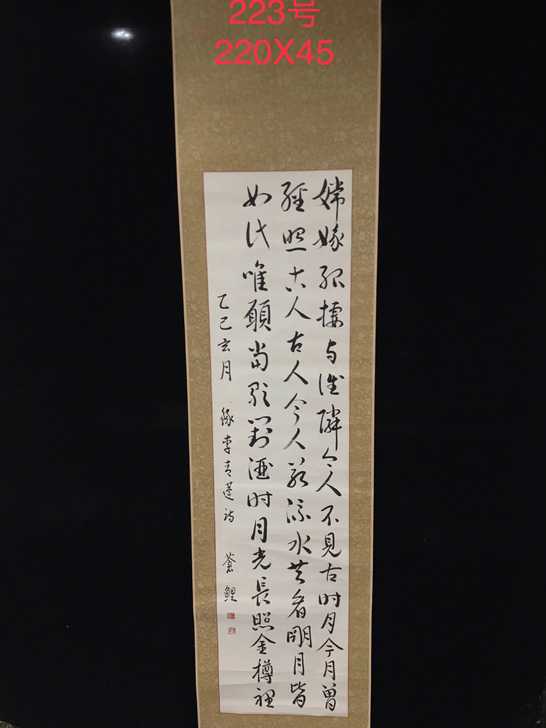 223号
220X45
嫦娥孤棲与誰隣今人不見古时月今月曾
經照古人古人今人若流水共看明月皆
如此唯願當歌對酒时月光長照金樽裡
乙巳玄月 緣李青蓮诗 蒼鯉